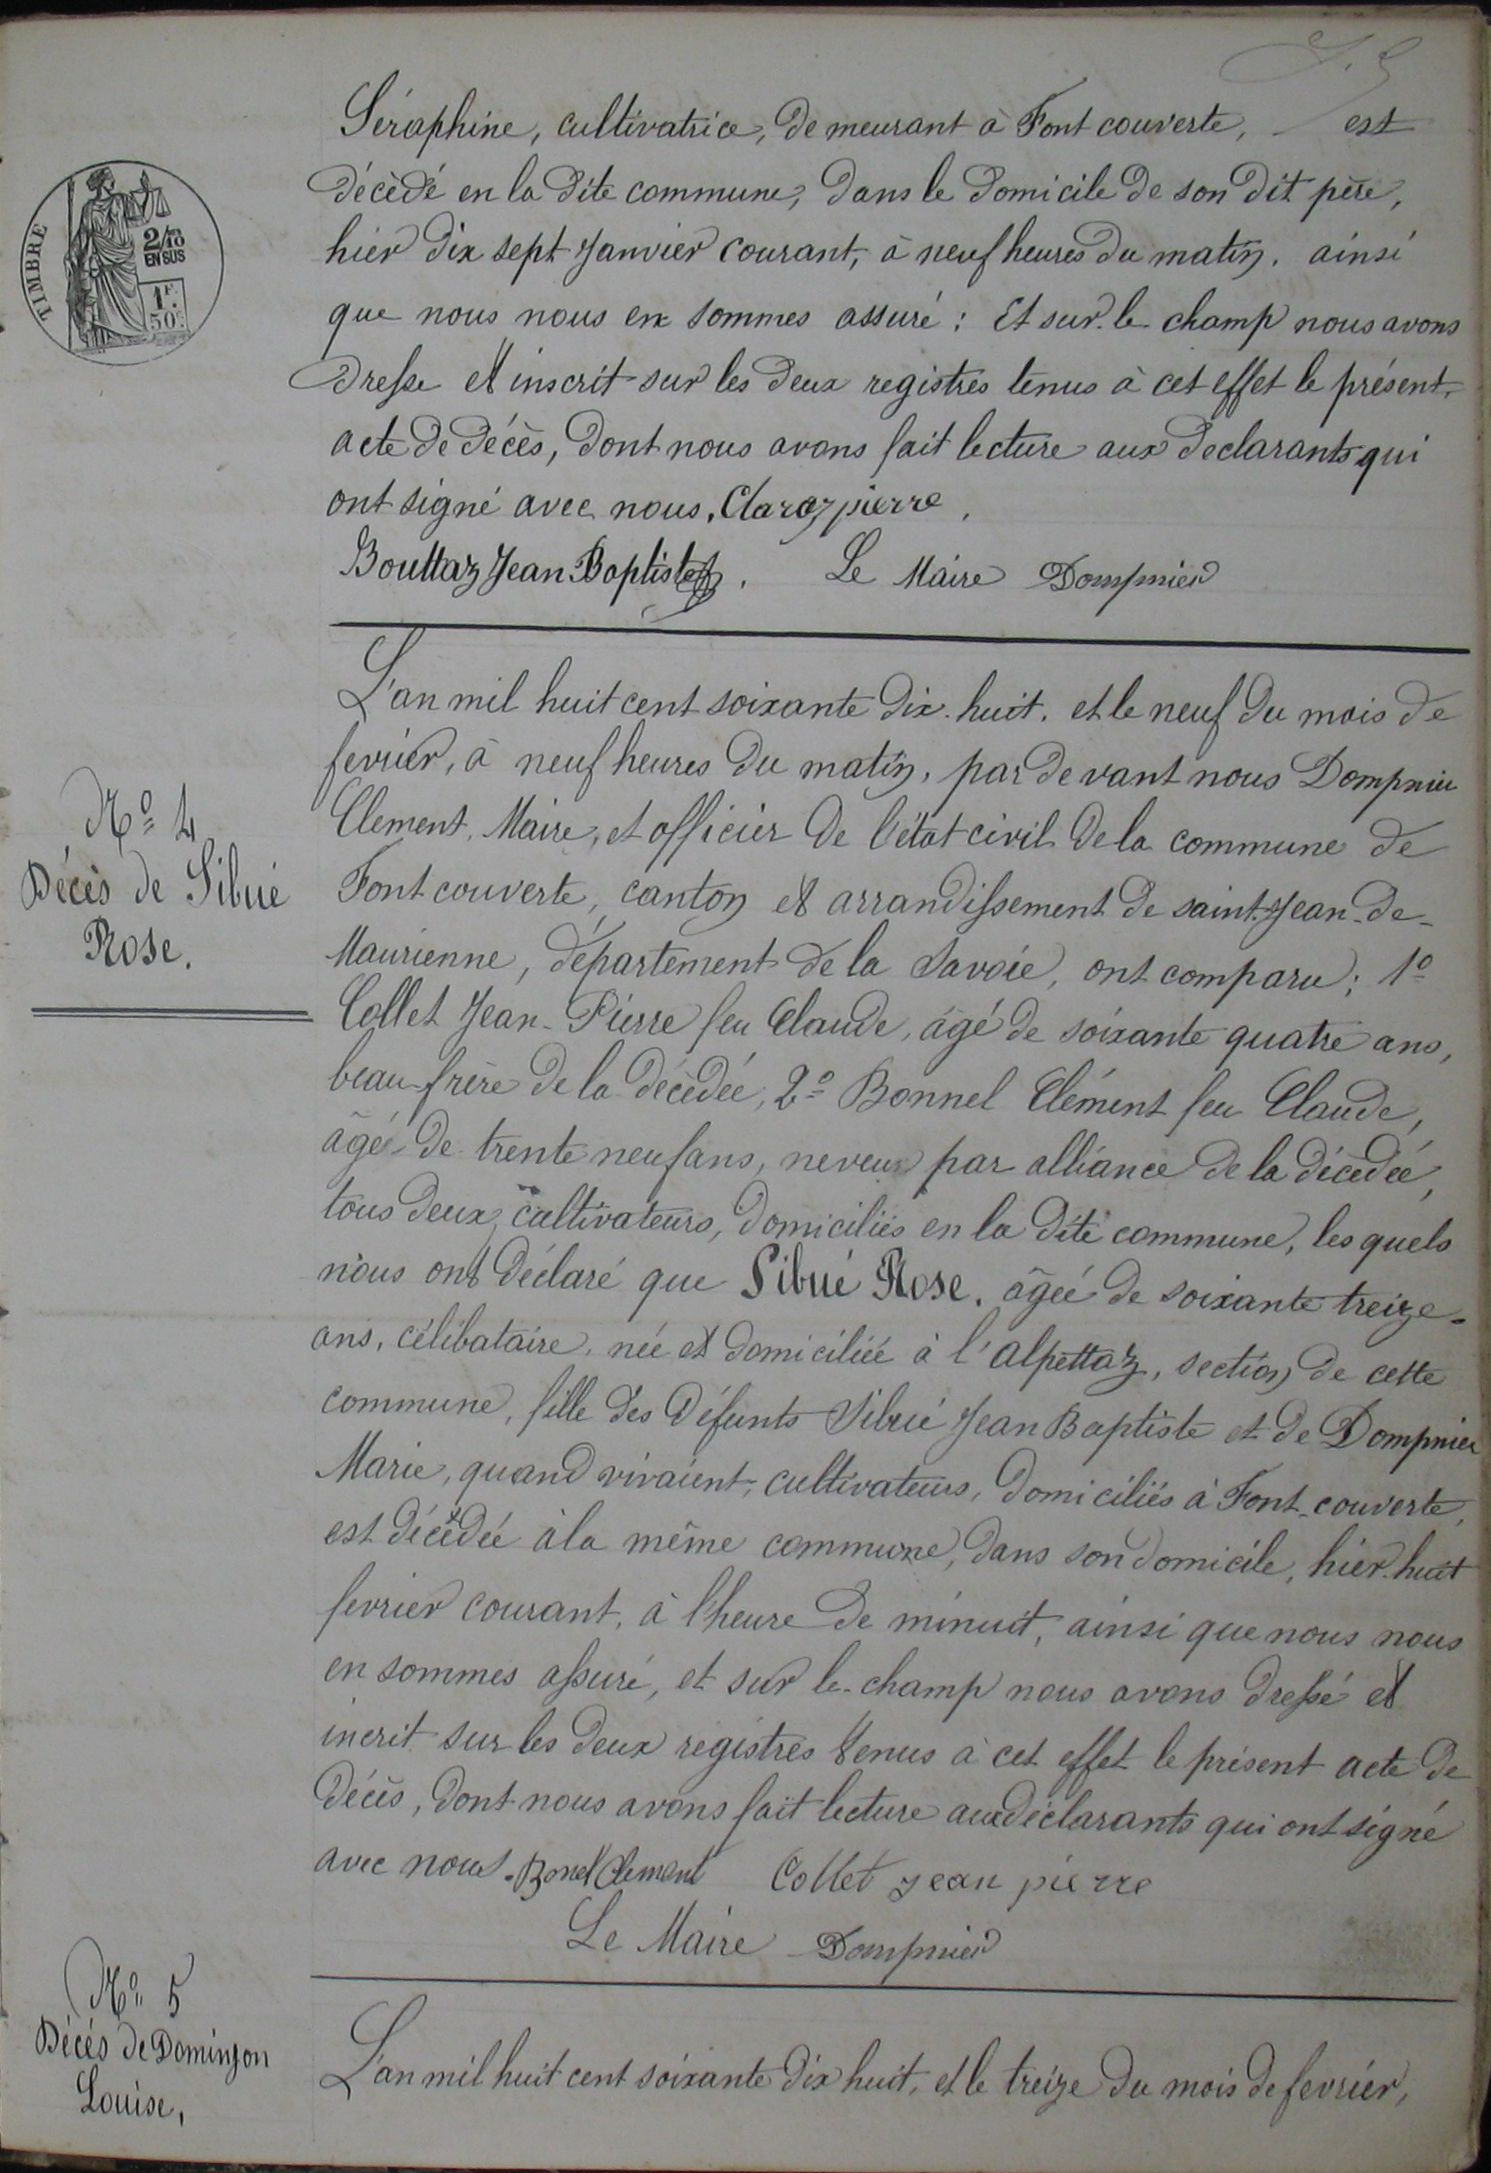 Séraphine, cultivatrice, demeurant à Font couverte, est
décèdé en la dite commune, dans le domicile de son dit père,
hier dix sept Janvier courant, à neuf heures du matin. ainsi
que nous nous en sommes assuré : Et sur-le-champ nous avons
dresse et inscrit sur les deux registres tenus à cet effet le présent
acte de décès, dont nous avons fait lecture aux declarants qui
ont signé avec nous. Claraz pierre.
Bouttaz Jean Baptiste. Le Maire Dompnier
TIMBRE
2/10
EN SUS
1F.
50c.
L'an mil huit cent soixante dix-huit. et le neuf du mois de
fevrier, à neuf heures du matin, par devant nous Dompnier
Clement, Maire, et officier de l'état civil de la commune de
Font couverte, canton et arrandissement de saint-Jean-de-
Maurienne, département de la Savoie, ont comparu; 1o
Collet Jean-Pierre feu Claude, âgé de soixante quatre ans,
beau-frère de la décèdée, 2o Bonnel Clément feu Claude,
âgé de trente neuf ans, neveu par alliance de la décèdée,
tous deux cultivateurs, domiciliés en la dite commune, les quels
nous ont déclaré que Sibué Rose. âgée de soixante treize
ans, célibataire, née et domiciliée à l'Alpettaz, section de cette
commune, fille des défunts Sibué Jean Baptiste et de Dompnier
Marie, quand vivaient, cultivateurs, domiciliés à Font-couverte,
est décédée à la même commune, dans son domicile, hier huit
fevrier courant, à l'heure de minuit, ainsi que nous nous
en sommes assuré, et sur le-champ nous avons dressé et
incrit sur les deux registres tenus à cet effet le présent acte de
décès, dont nous avons fait lecture aux déclarants qui ont signé
avec nous. Bonel Clement Collet jean pierre
Le Maire Dompnier
No 4
Décès de Sibué
Rose.
No 5
Décès de Dominjon
Louise,
L'an mil huit cent soixante dix huit, et le treize du mois de fevrier,